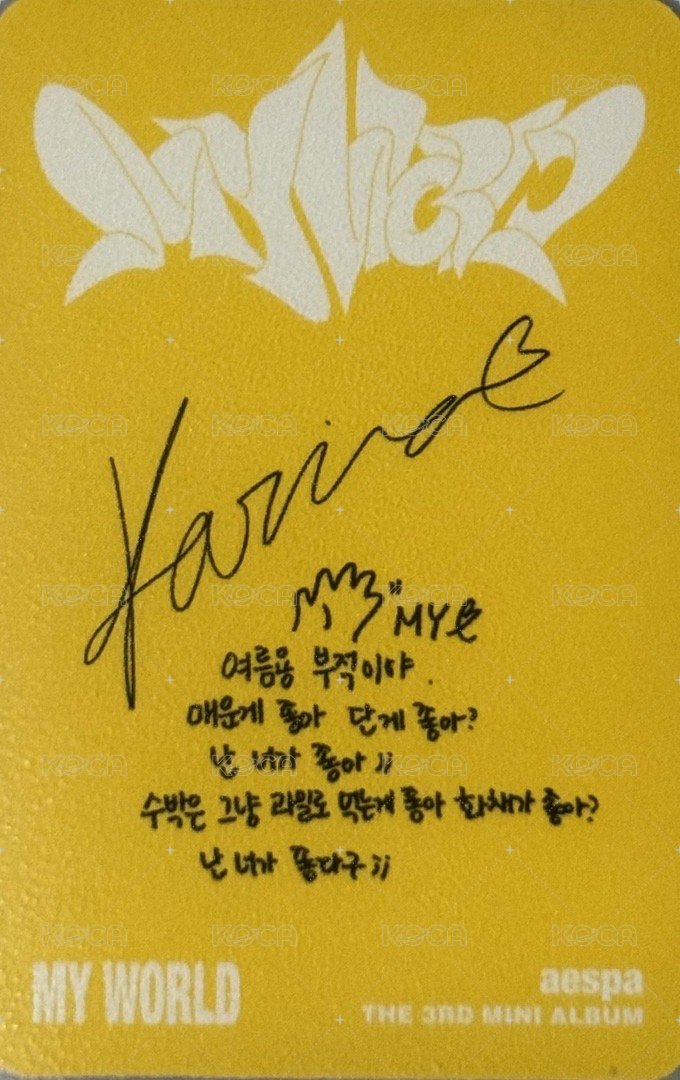 MY WORLD
Karina
MY
여름용 부적이야.
매운게 좋아 단게 좋아?
난 너가 좋아 ;;
수박은 그냥 과일로 먹는게 좋아 화채가 좋아?
난 너가 좋다구 ;;
MY WORLD
aespa
THE 3RD MINI ALBUM
KOCA